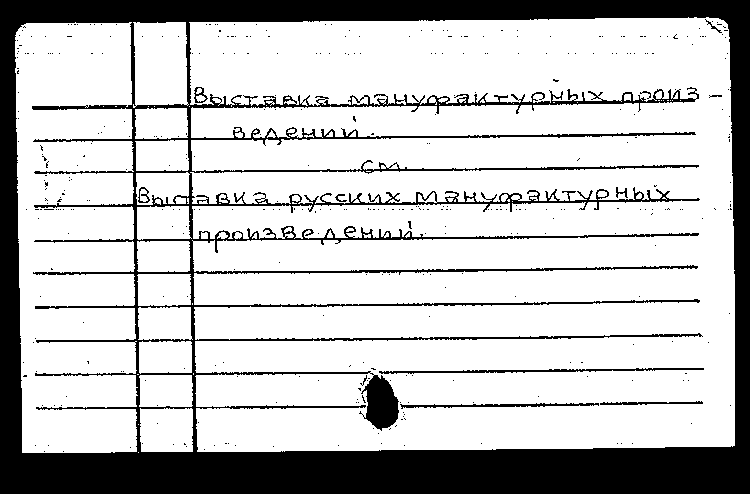 Выставка мануфактурных произ-
ведений.
см.
Выставка русских мануфактурных
произведений.